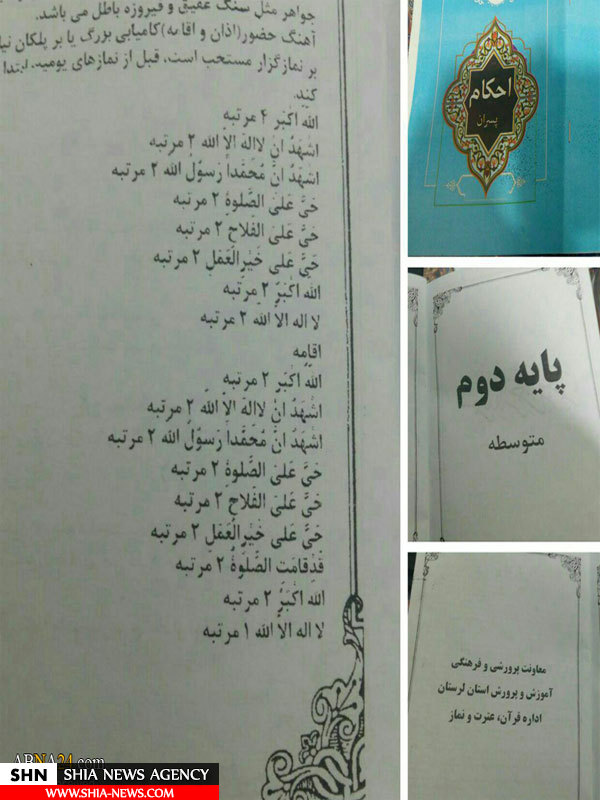 جواهر مثل سنگ عقیق و فیروزه باطل می باشد.
آهنگ حضور(اذان و اقامه)کامیابی بزرگ یا بر پلکان
بر نمازگزار مستحب است، قبل از نمازهای یومیه، ابتدا
کند.
الله اکبر ۴ مرتبه
اشهد ان لااله الا الله ۲ مرتبه
اشهد ان محمدا رسول الله ۲ مرتبه
حی علی الصلوة ۲ مرتبه
حی علی الفلاح ۲ مرتبه
حی علی خیرالعمل ۲ مرتبه
الله اکبر ۲ مرتبه
لا اله الا الله ۲ مرتبه
اقامه
الله اکبر ۲ مرتبه
اشهد ان لااله الا الله ۲ مرتبه
اشهد ان محمدا رسول الله ۲ مرتبه
حی علی الصلوة ۲ مرتبه
حی علی الفلاح ۲ مرتبه
حی علی خیرالعمل ۲ مرتبه
قدقامت الصلوة ۲ مرتبه
الله اکبر ۲ مرتبه
لا اله الا الله ۱ مرتبه
احکام
پسران
پایه دوم
متوسطه
معاونت پرورشی و فرهنگی
آموزش و پرورش استان لرستان
اداره قرآن، عترت و نماز
ABNA24.com
SHN SHIA NEWS AGENCY
WWW.SHIA-NEWS.COM